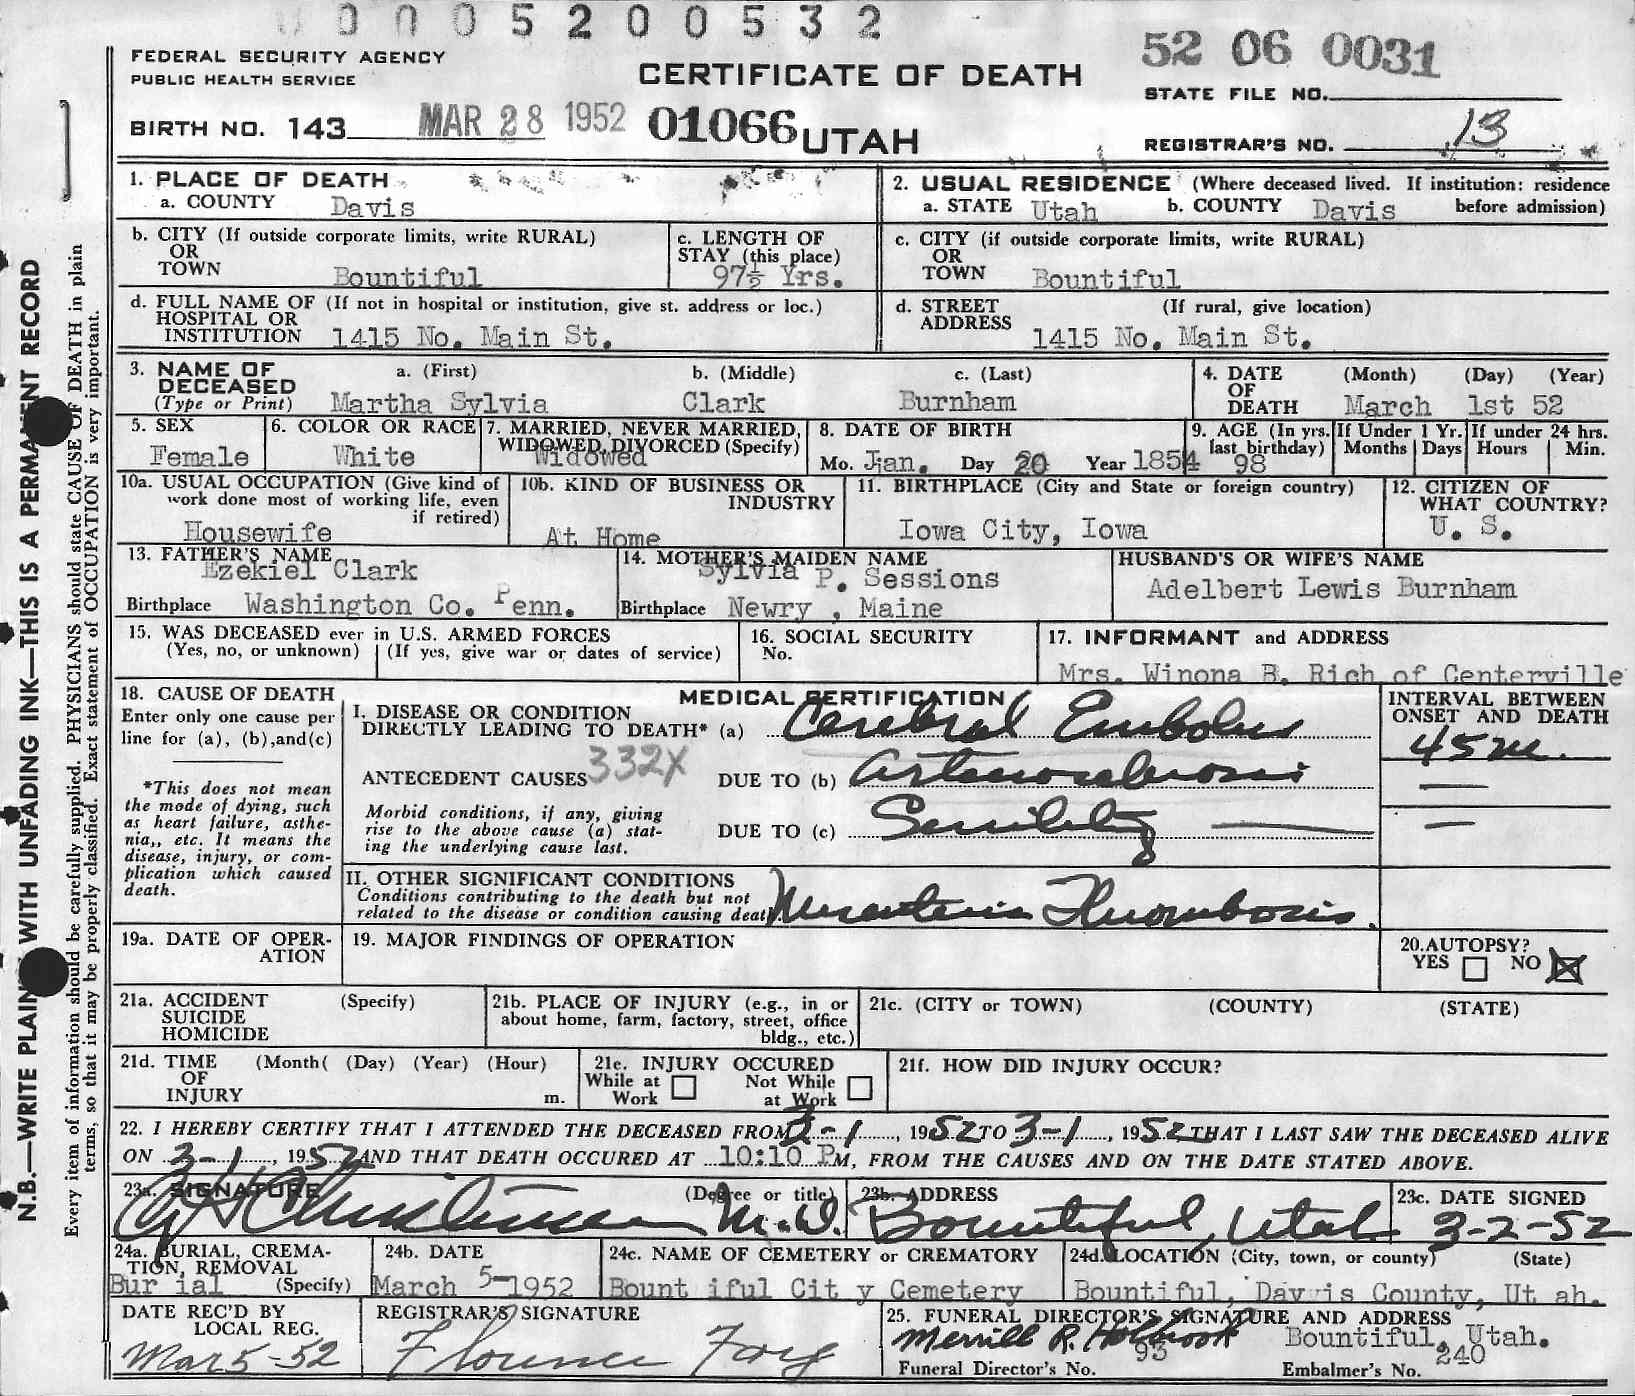 0005200532
FEDERAL SECURITY AGENCY
PUBLIC HEALTH SERVICE
CERTIFICATE OF DEATH
52 06 0031
STATE FILE NO.
BIRTH NO. 143 MAR 28 1952 01066 UTAH
REGISTRAR'S NO. 13
1. PLACE OF DEATH
a. COUNTY Davis
2. USUAL RESIDENCE (Where deceased lived. If institution: residence before admission)
a. STATE Utah b. COUNTY Davis
b. CITY (If outside corporate limits, write RURAL)
OR
TOWN Bountiful
c. LENGTH OF
STAY (this place)
97½ Yrs.
c. CITY (if outside corporate limits, write RURAL)
OR
TOWN Bountiful
d. FULL NAME OF (If not in hospital or institution, give st. address or loc.)
HOSPITAL OR
INSTITUTION 1415 No. Main St.
d. STREET (If rural, give location)
ADDRESS 1415 No. Main St.
3. NAME OF
DECEASED
(Type or Print)
a. (First) b. (Middle) c. (Last)
Martha Sylvia Clark Burnham
4. DATE (Month) (Day) (Year)
OF
DEATH March 1st 52
5. SEX
Female
6. COLOR OR RACE
White
7. MARRIED, NEVER MARRIED,
WIDOWED, DIVORCED (Specify)
Widowed
8. DATE OF BIRTH
Mo. Jan. Day 20 Year 1854
9. AGE (In yrs.
last birthday) 98
If Under 1 Yr.
Months Days
If under 24 hrs.
Hours Min.
10a. USUAL OCCUPATION (Give kind of
work done most of working life, even
if retired)
Housewife
10b. KIND OF BUSINESS OR
INDUSTRY
At Home
11. BIRTHPLACE (City and State or foreign country)
Iowa City, Iowa
12. CITIZEN OF
WHAT COUNTRY?
U. S.
13. FATHER'S NAME
Ezekiel Clark
Birthplace Washington Co. Penn.
14. MOTHER'S MAIDEN NAME
Sylvia P. Sessions
Birthplace Newry , Maine
HUSBAND'S OR WIFE'S NAME
Adelbert Lewis Burnham
15. WAS DECEASED ever in U.S. ARMED FORCES
(Yes, no, or unknown) (If yes, give war or dates of service)
16. SOCIAL SECURITY
No.
17. INFORMANT and ADDRESS
Mrs. Winona B. Rich of Centerville
18. CAUSE OF DEATH
Enter only one cause per
line for (a), (b),and(c)
*This does not mean
the mode of dying, such
as heart failure, asthe-
nia,, etc. It means the
disease, injury, or com-
plication which caused
death.
MEDICAL CERTIFICATION
I. DISEASE OR CONDITION
DIRECTLY LEADING TO DEATH* (a) Cerebral Embolus
ANTECEDENT CAUSES 332X DUE TO (b) Arteriosclerosis
Morbid conditions, if any, giving
rise to the above cause (a) stat-
ing the underlying cause last.
DUE TO (c) Senility
INTERVAL BETWEEN
ONSET AND DEATH
45 m.
II. OTHER SIGNIFICANT CONDITIONS
Conditions contributing to the death but not
related to the disease or condition causing death. Mesenteric Thrombosis.
19a. DATE OF OPER-
ATION
19. MAJOR FINDINGS OF OPERATION
20. AUTOPSY?
YES NO
21a. ACCIDENT (Specify)
SUICIDE
HOMICIDE
21b. PLACE OF INJURY (e.g., in or
about home, farm, factory, street, office
bldg., etc.)
21c. (CITY or TOWN) (COUNTY) (STATE)
21d. TIME (Month( (Day) (Year) (Hour)
OF
INJURY m.
21e. INJURY OCCURED
While at Work Not While at Work
21f. HOW DID INJURY OCCUR?
22. I HEREBY CERTIFY THAT I ATTENDED THE DECEASED FROM 3-1, 1952 TO 3-1, 1952 THAT I LAST SAW THE DECEASED ALIVE
ON 3-1, 1952 AND THAT DEATH OCCURED AT 10:10 PM, FROM THE CAUSES AND ON THE DATE STATED ABOVE.
23a. SIGNATURE (Degree or title)
Christensen M.D.
23b. ADDRESS
Bountiful, Utah
23c. DATE SIGNED
3-2-52
24a. BURIAL, CREMA-
TION, REMOVAL
(Specify)
Bur ial
24b. DATE
March 5-1952
24c. NAME OF CEMETERY or CREMATORY
Bount iful Cit y Cemetery
24d. LOCATION (City, town, or county) (State)
Bountiful, Davis County, Ut ah.
DATE REC'D BY
LOCAL REG.
Mar 5-52
REGISTRAR'S SIGNATURE
Florence
25. FUNERAL DIRECTOR'S SIGNATURE AND ADDRESS
Merrill R. Holbrook Bountiful, Utah.
Funeral Director's No. 93 Embalmer's No. 240
N.B.—WRITE PLAINLY WITH UNFADING INK—THIS IS A PERMANENT RECORD
Every item of information should be carefully supplied. PHYSICIANS should state CAUSE OF DEATH in plain
terms, so that it may be properly classified. Exact statement of OCCUPATION is very important.